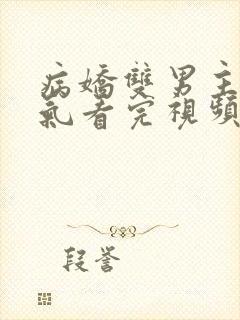 病嬌雙男主
氣看完視頻
段誉